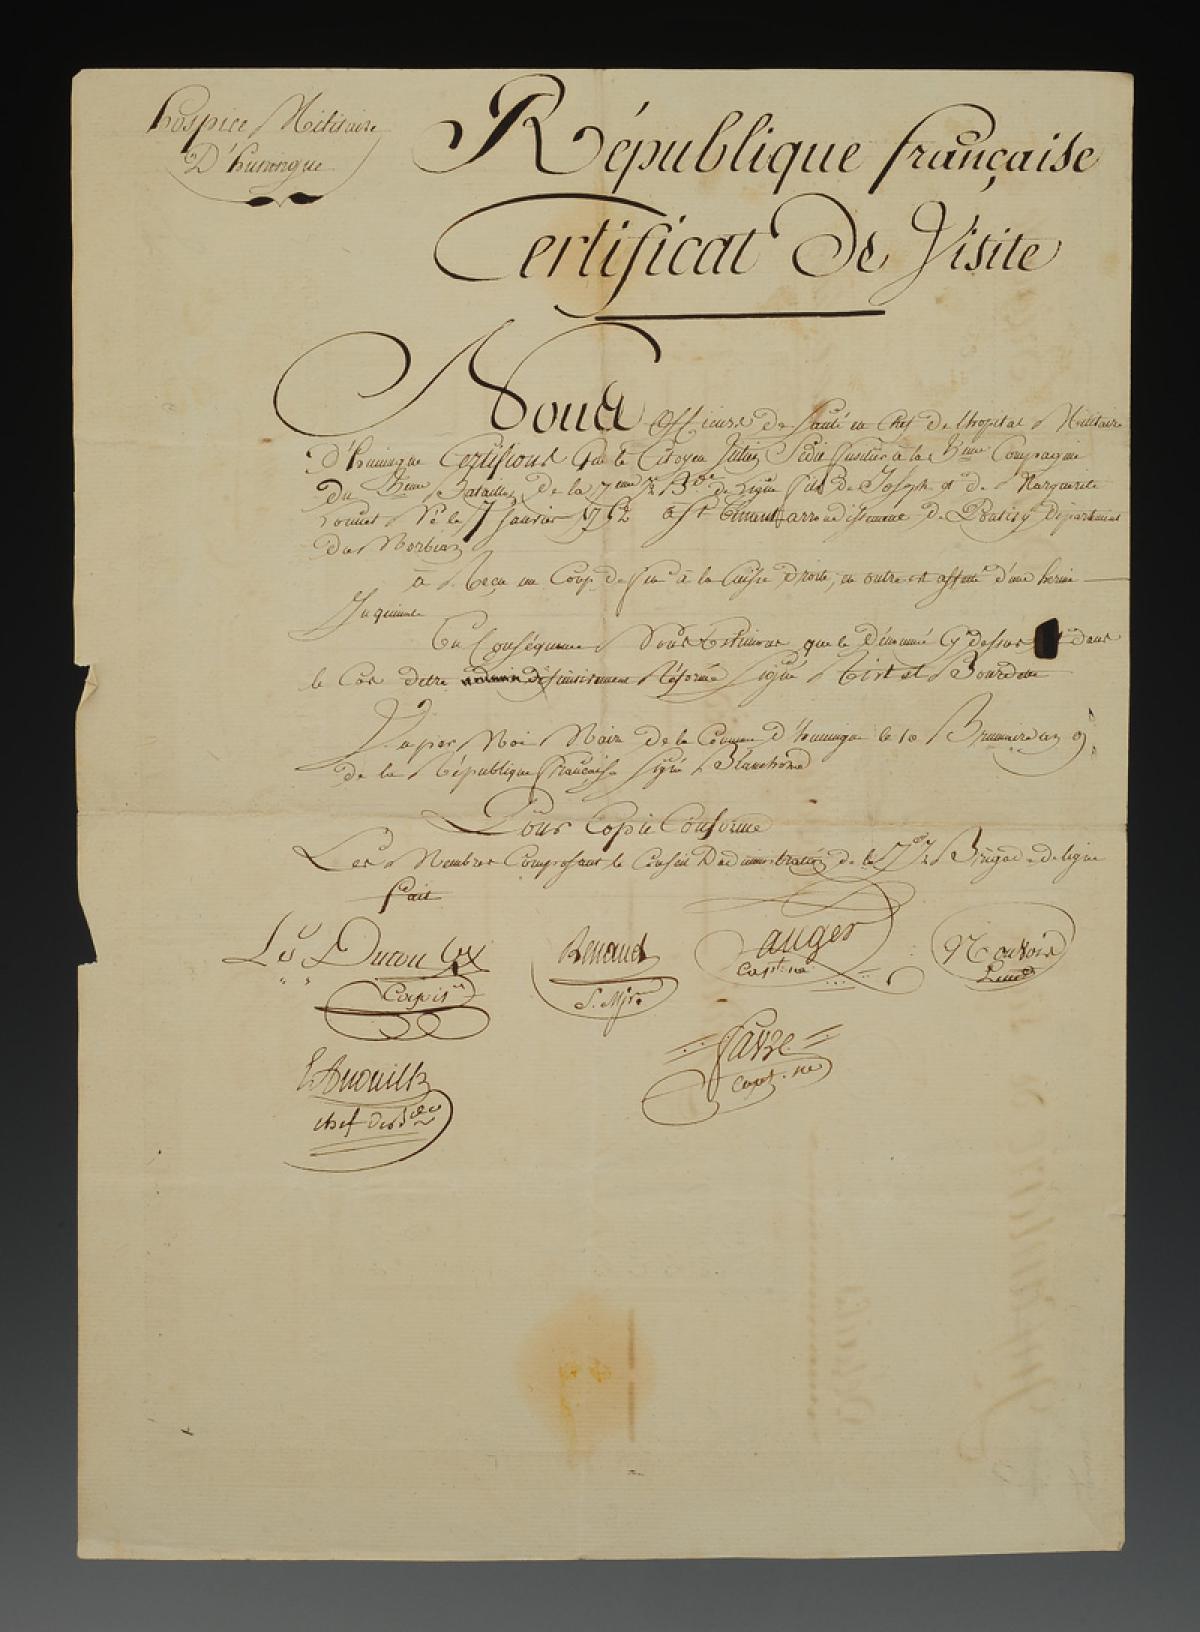 hospice Militaire
D'huningue
République française
Certificat De Visite
Nous Officiers de Santé en Chef de l'hopital Militaire
D'huningue Certifions Que le Citoyen Julien fusilier à la 3eme Compagnie
Du Bataillon De la 7eme ½ Bde de Ligne fils de Joseph et de Marguerite
Né le 7 Janvier 1762 a St arrondissement De Pontivy Departement
Du Morbian
à Reçu un Coup de feu à la Cuisse Droite, en outre est affecté d'une hernie
Inguinale
En Conséquence Nous Estimons que le Dénommé Cy dessus est dans
le Cas detre définitivement Réformé Signé et Bourdette
Vu par Moi Maire De la Commune d'huningue le 10 Brumaire an 9
de la République française Signé Blanchard
Pour Copie Conforme
Les Membres Composant le Conseil Dadministration de la 7e ½ Brigade de ligne
fait
Ls Ducou
Renaud
auger
Capt. ne
S. Mjor
Favre
Capt. ne
chef de Bde